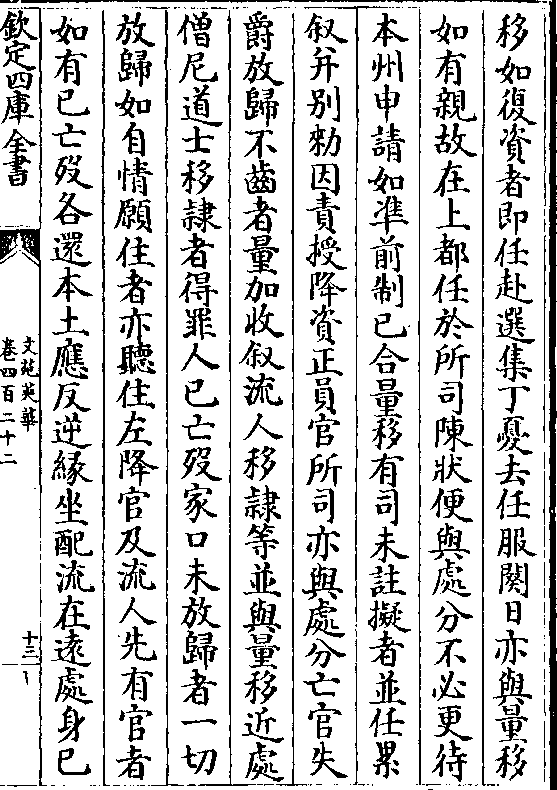 移如復資者即任赴選集丁憂去任服闋日亦與量移
如有親故在上都任於所司陳狀便與處分不必更待
本州申請如準前制已合量移有司未註擬者並任累
叙并别勑因責授降資正員官所司亦與處分亡官失
爵放歸不齒者量加收叙流人移隷等並與量移近處
僧尼道士移隷者得罪人已亡歿家口未放歸者一切
放歸如自情願住者亦聽住左降官及流人先有官者
如有已亡歿各還本土應反逆縁坐配流在逺處身已
欽定四庫全書
文苑英華
卷四百二十二
十三